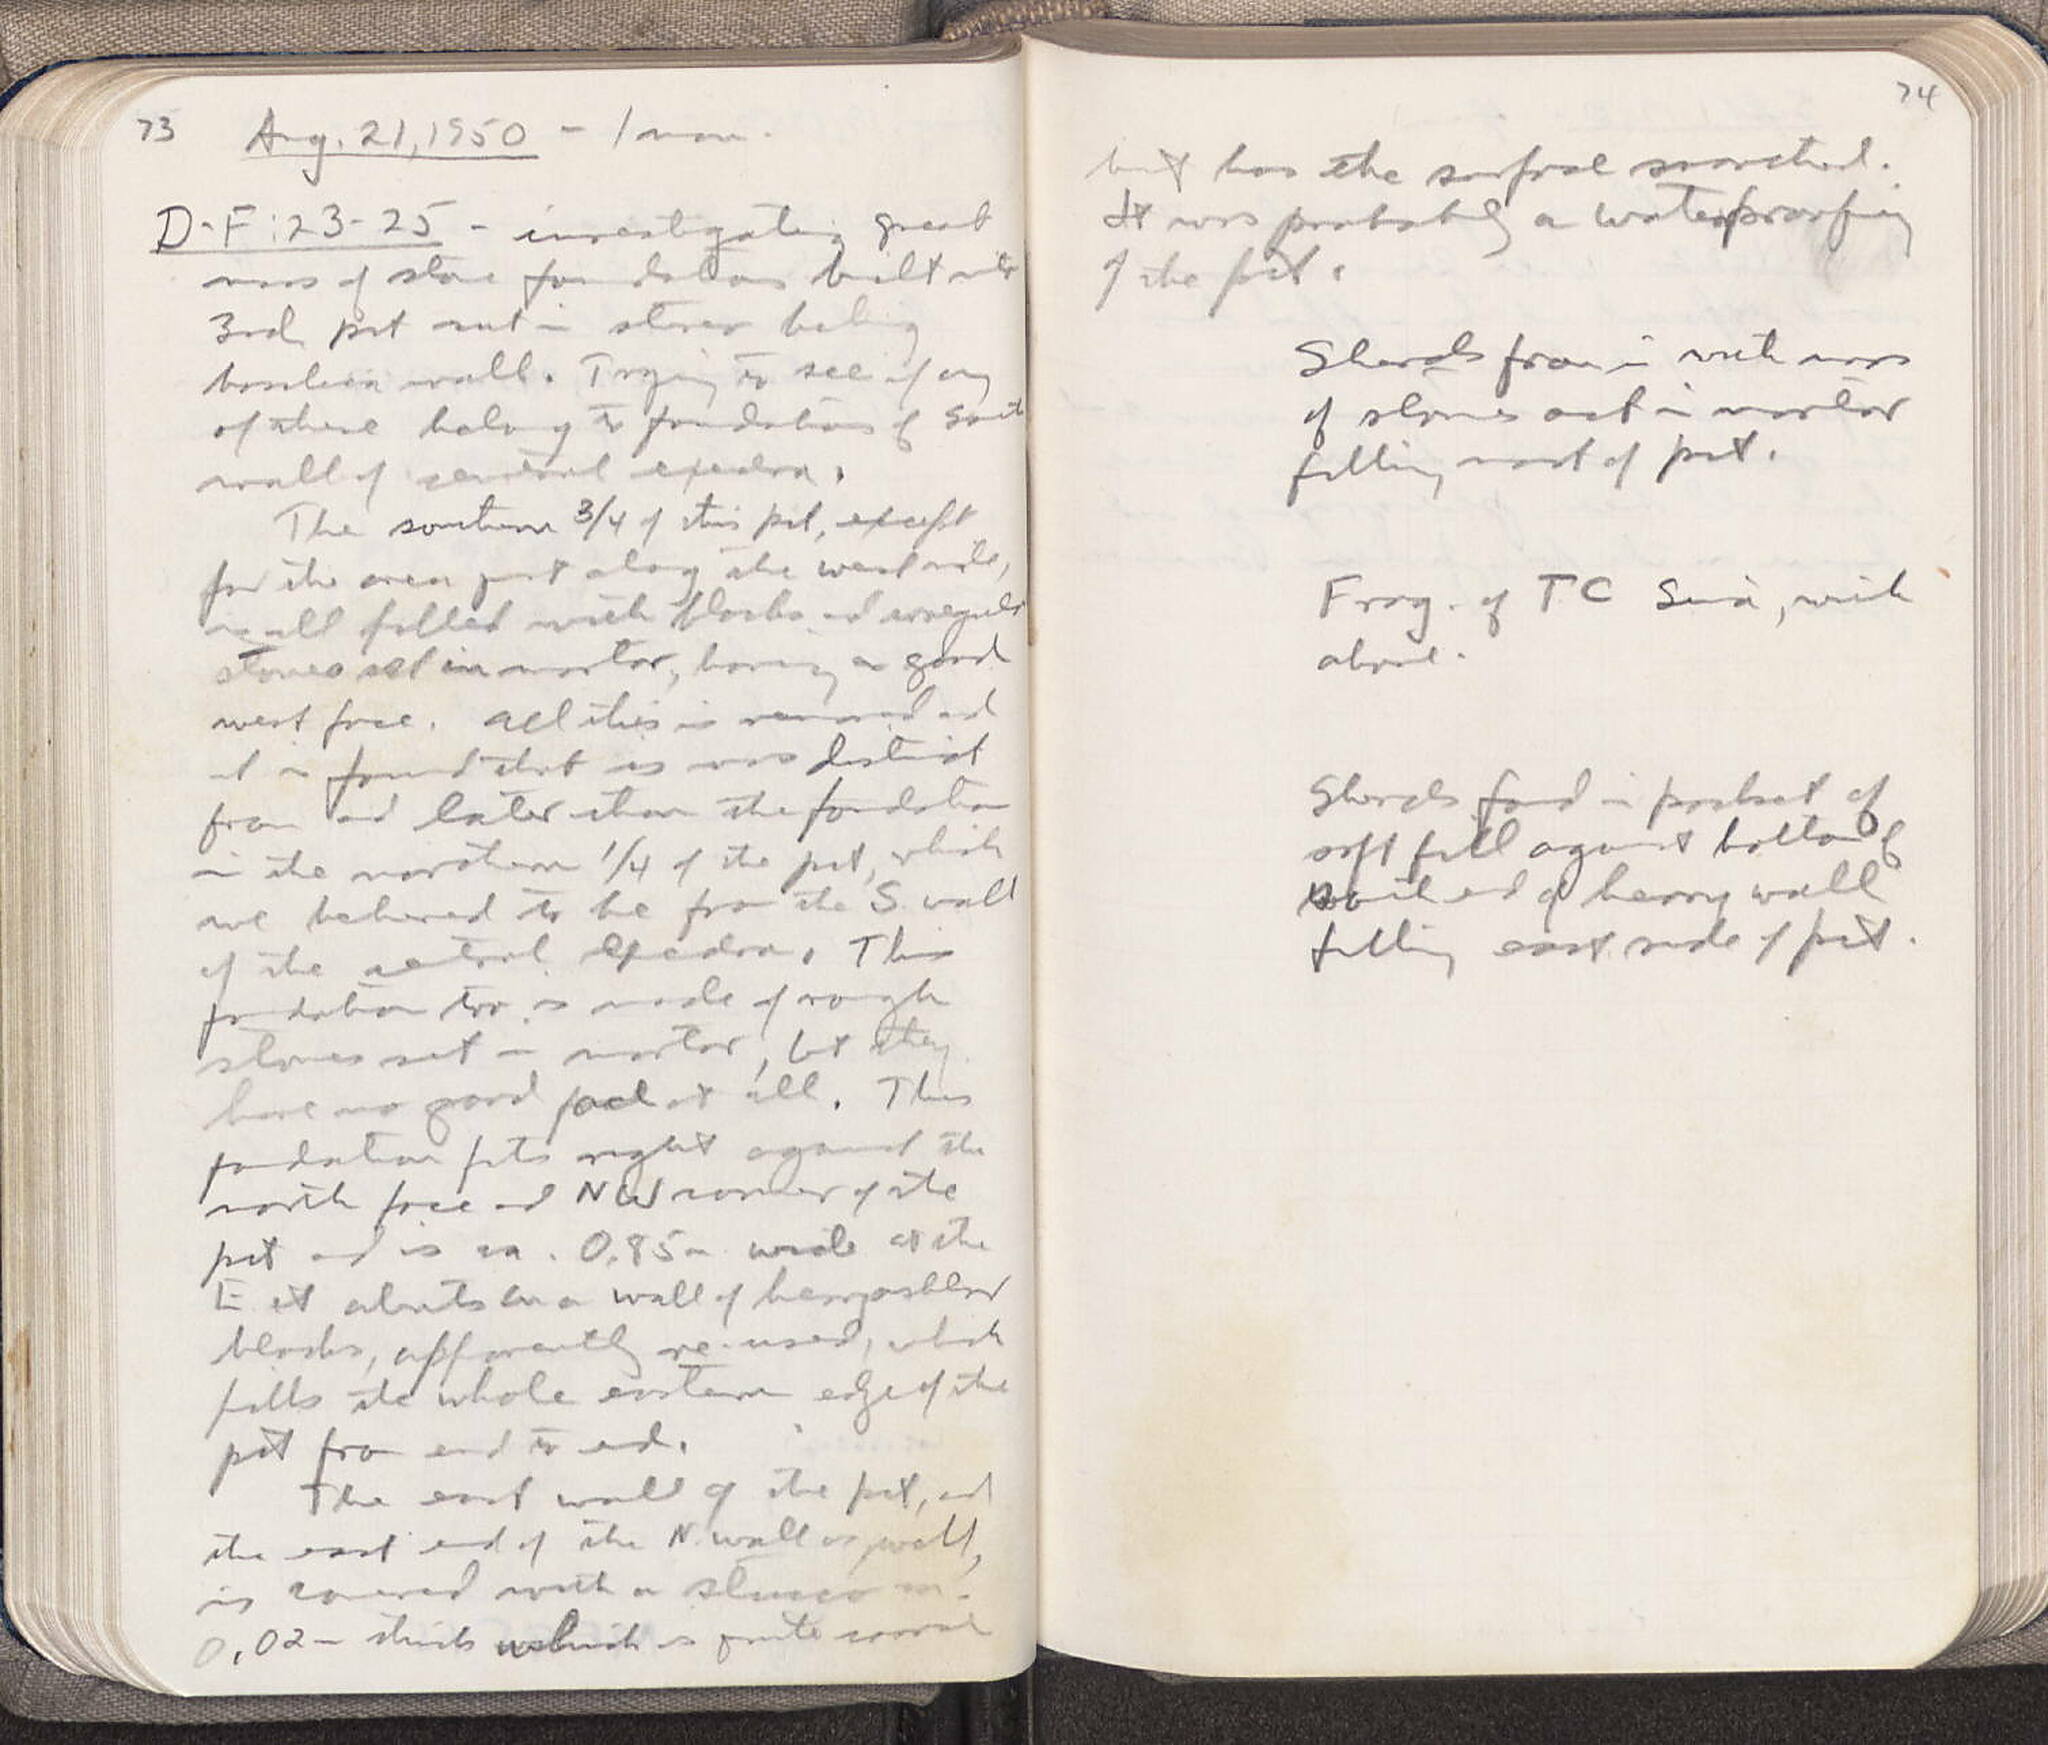 73 Aug. 21, 1950 - 1 man.
D-F:23-25 - investigating great
mass of stone foundations built into
3rd pit cut in stereo
basilica wall. Trying to see if any
of these belong to foundations of South
wall of central exedra.
The southern 3/4 of this pit, except
for the area just along the west side,
is all filled with blocks and irregular
stones set in mortar, having a good
west face. All this is removed and
it is found that is was distinct
from and later than the foundation
in the northern 1/4 of the pit, which
we believed to be from the S. wall
of the central exedra. This
foundation too is made of rough
stones set in mortar, but they
have no good face at all. This
foundation fits right against the
north face and NW corner of the
pit and is ca. 0.85m wide at the
E it abuts on a wall of heavy ashlar
blocks, apparently re-used, which
fills the whole eastern edge of the
pit from end to end.
The east wall of the pit, and
the east end of the N. wall as well,
is covered with a stucco ca.
0.02m thick which is quite coarse
74
but has the surface smoothed.
It was probably a waterproofing
of the pit.
Sherds from in with mass
of stones set in mortar
filling most of pit.
Frag. of TC Sima, with
above.
Sherds found in pocket of
soft fill against bottom of
south end of heavy wall
filling east side of pit.